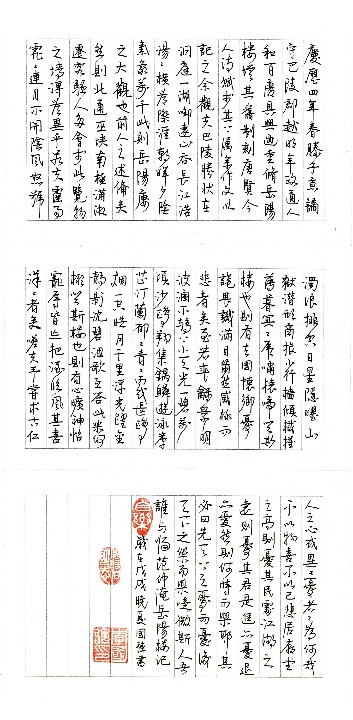 慶歷四年春滕子京謫
守巴陵郡越明年政通人
和百廢具興乃重修岳陽
樓增其舊制刻唐賢今
人詩賦于其上屬予作文以
記之余觀夫巴陵勝狀在
洞庭一湖啣遠山吞長江浩
湯々橫無際涯朝暉夕陰
氣象萬千此則岳陽樓
之大觀也前人之述備矣
然則北通巫峽南極瀟湘
遷客騷人多會于此覽物
之情得無異乎若夫霪雨
霏々連月不開陰風怒號
濁浪排空日星隱曜山
嶽潛形商旅不行檣傾楫摧
薄暮冥々虎嘯猿啼登斯
樓也則有去國懷鄉憂
讒畏譏滿目蕭然感極而
悲者矣至若春和景明
波瀾不驚上下天光一碧萬
頃沙鷗翔集錦鱗游泳岸
芷汀蘭郁々青々而或長
煙一空皓月千里浮光躍金
靜影沈碧漁歌互答此樂何
極登斯樓也則有心曠神怡
寵辱皆忘把酒臨風其喜
洋々者矣嗟夫予嘗求古仁
人之心或異二者之為何哉
不以物喜不以己悲居廟堂
之高則憂其民處江湖之
遠則憂其君是進亦憂退
亦憂然則何時而樂耶其
必曰先天下之憂而憂後
天下之樂而樂噫微斯人吾
誰與歸范仲淹岳陽樓記
歲在戊戌晚夏國強書